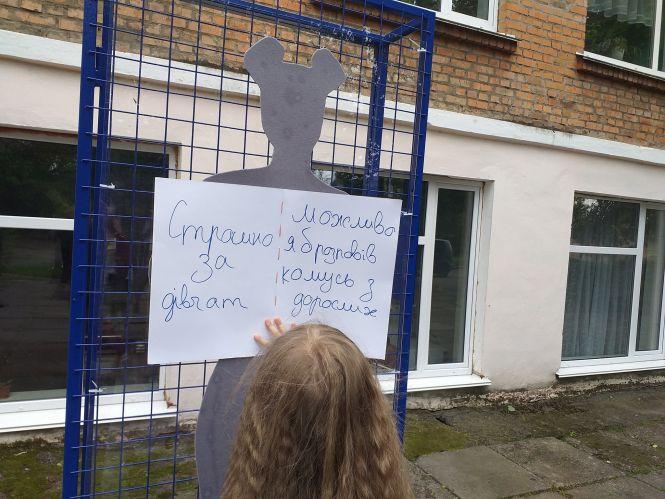 Страшно
за
дівчат
можливо
я б розповів
комусь з
дорослих